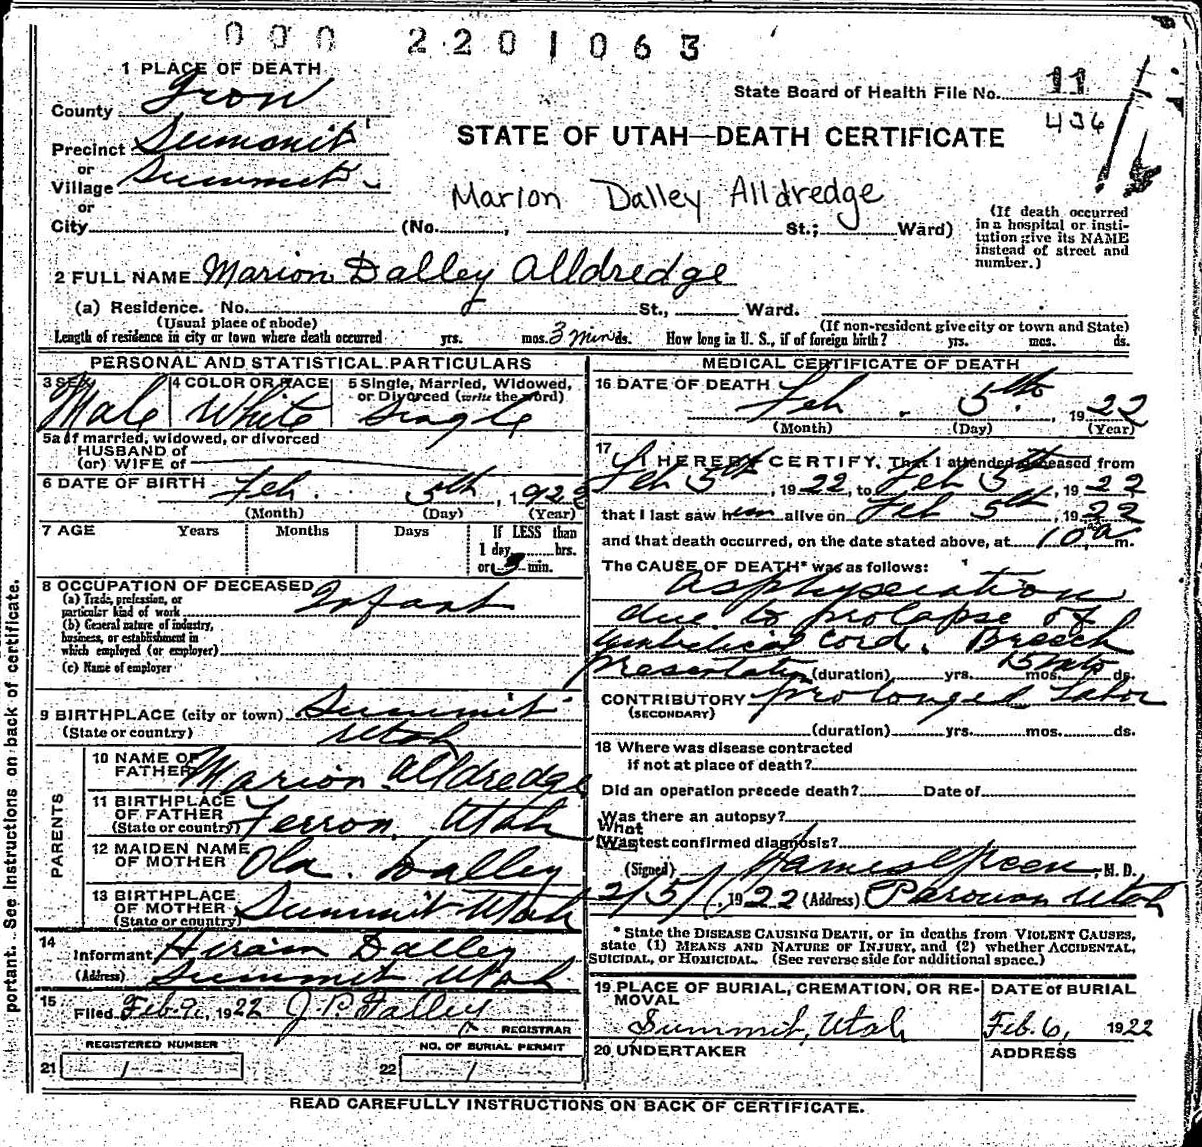 000 2201063
1 PLACE OF DEATH
County Iron
State Board of Health File No. 11
436
Precinct Summit
STATE OF UTAH—DEATH CERTIFICATE
or
Village Summit
Marion Dalley Alldredge
or
City (No. , St.; Ward)
(If death occurred in a hospital or insti-
tution give its NAME
instead of street and
number.)
2 FULL NAME Marion Dalley Alldredge
(a) Residence. No. St., Ward.
(Usual place of abode) (If non-resident give city or town and State)
Length of residence in city or town where death occurred yrs. mos. 3 min ds. How long in U. S., if of foreign birth? yrs. mos. ds.
PERSONAL AND STATISTICAL PARTICULARS
3 SEX Male
4 COLOR OR RACE White
5 Single, Married, Widowed,
or Divorced (write the word)
Single
5a If married, widowed, or divorced
HUSBAND of
(or) WIFE of
6 DATE OF BIRTH Feb. 5th, 1922
(Month) (Day) (Year)
7 AGE Years Months Days If LESS than
1 day, hrs.
or min.
8 OCCUPATION OF DECEASED
(a) Trade, profession, or
particular kind of work Infant
(b) General nature of industry,
business, or establishment in
which employed (or employer)
(c) Name of employer
9 BIRTHPLACE (city or town) Summit
(State or country) Utah
PARENTS
10 NAME OF
FATHER Marion Alldredge
11 BIRTHPLACE
OF FATHER
(State or country) Ferron, Utah
12 MAIDEN NAME
OF MOTHER Ola Dalley
13 BIRTHPLACE
OF MOTHER
(State or country) Summit Utah
14
Informant Hiram Dalley
(Address) Summit Utah
15
Filed Feb. 9, 1922 J. P. Dalley
REGISTRAR
REGISTERED NUMBER
21 1
NO. OF BURIAL PERMIT
22 1
MEDICAL CERTIFICATE OF DEATH
16 DATE OF DEATH Feb. 5th, 1922
(Month) (Day) (Year)
17
I HEREBY CERTIFY, That I attended deceased from
Feb 5th, 1922, to Feb 5th, 1922
that I last saw him alive on Feb 5th, 1922
and that death occurred, on the date stated above, at 10 a m.
The CAUSE OF DEATH* was as follows:
Asphyxiation
due to prolapse of
umbelical cord. Breech
presentation (duration) yrs. mos. 15 ds.
CONTRIBUTORY prolonged labor
(SECONDARY)
(duration) yrs. mos. ds.
18 Where was disease contracted
if not at place of death?
Did an operation precede death? Date of
Was there an autopsy?
What
test confirmed diagnosis?
(Signed) James Green, M. D.
2/5/, 1922 (Address) Parowan Utah
* State the DISEASE CAUSING DEATH, or in deaths from VIOLENT CAUSES,
state (1) MEANS AND NATURE OF INJURY, and (2) whether ACCIDENTAL,
SUICIDAL, or HOMICIDAL. (See reverse side for additional space.)
19 PLACE OF BURIAL, CREMATION, OR RE-
MOVAL
Summit, Utah
DATE of BURIAL
Feb. 6, 1922
20 UNDERTAKER
ADDRESS
READ CAREFULLY INSTRUCTIONS ON BACK OF CERTIFICATE.
portant. See instructions on back of certificate.